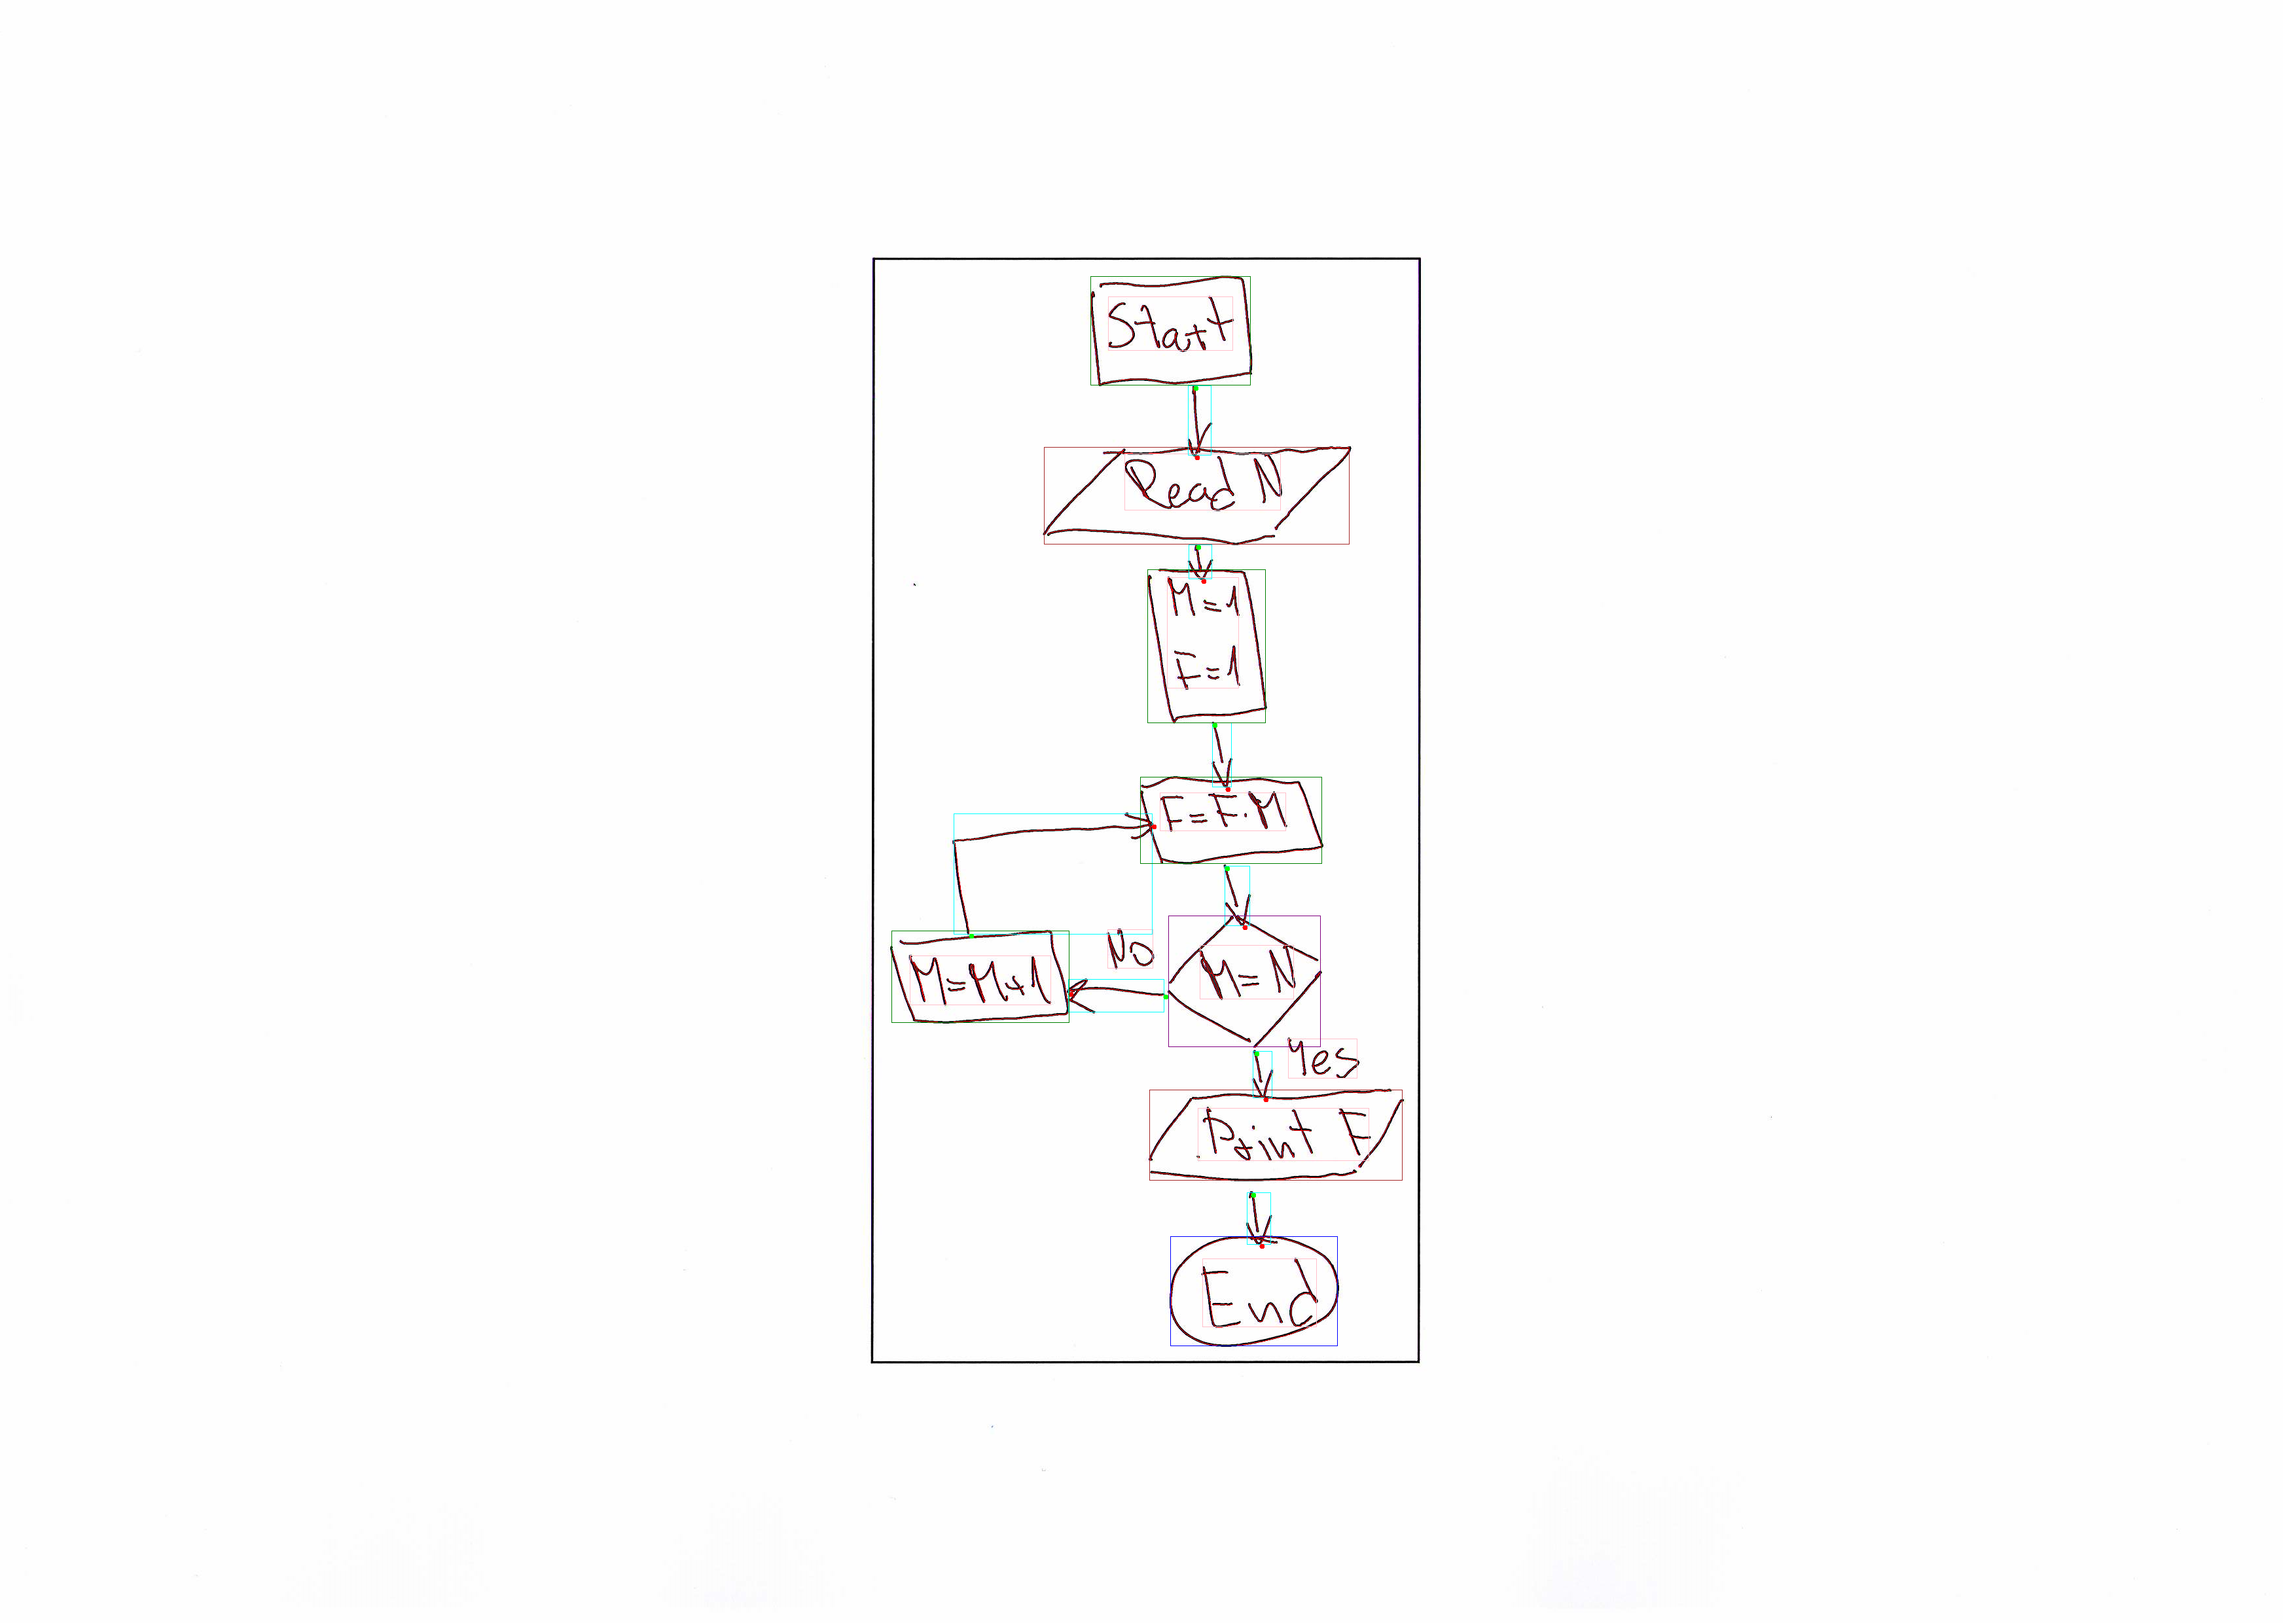 Start
Read N
M=1
F=1
F=F·M
No
M=M+1
M=N
Yes
Print F
End